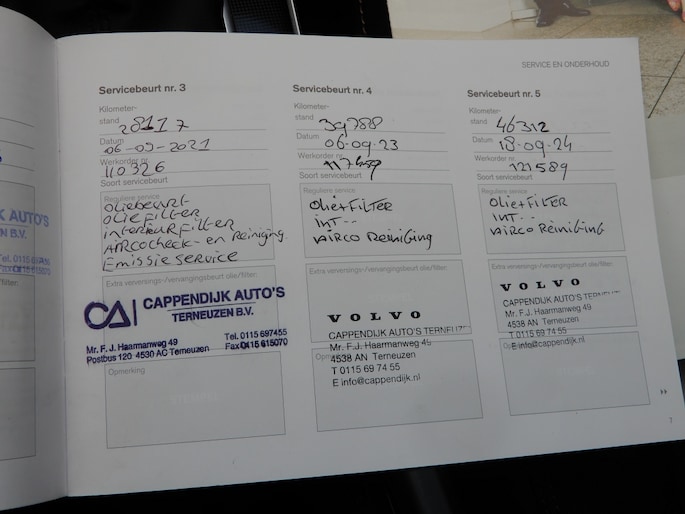 SERVICE EN ONDERHOUD
Servicebeurt nr. 3
Kilometer-
stand 28117
Datum 06-09-2021
Werkorder nr. 110326
Soort servicebeurt
Reguliere service
Oliebeurt
Oliefilter
interieurfilter
Aircocheck- en Reiniging.
Emissie service
Extra verversings-/vervangingsbeurt olie/filter:
CA CAPPENDIJK AUTO'S
TERNEUZEN B.V.
Mr. F.J. Haarmanweg 49 Tel. 0115 697455
Postbus 120 4530 AC Terneuzen Fax 0115 615070
Opmerking
Servicebeurt nr. 4
Kilometer-
stand 39788
Datum 06-09-23
Werkorder nr.
Soort servicebeurt
Reguliere service
Olie+Filter
INT --
Airco Reiniging
Extra verversings-/vervangingsbeurt olie/filter:
VOLVO
CAPPENDIJK AUTO'S TERNEUZ
Mr. F.J. Haarmanweg 49
4538 AN Terneuzen
T 0115 69 74 55
E info@cappendijk.nl
Servicebeurt nr. 5
Kilometer-
stand 46312
Datum 18-09-24
Werkorder nr. 121589
Soort servicebeurt
Reguliere service
Olie+Filter
INT --
Airco Reiniging
Extra verversings-/vervangingsbeurt olie/filter:
VOLVO
CAPPENDIJK AUTO'S
Mr. F.J. Haarmanweg 49
4538 AN Terneuzen
T 0115 69 74 55
E info@cappendijk.nl
7
K AUTO'S
EN B.V.